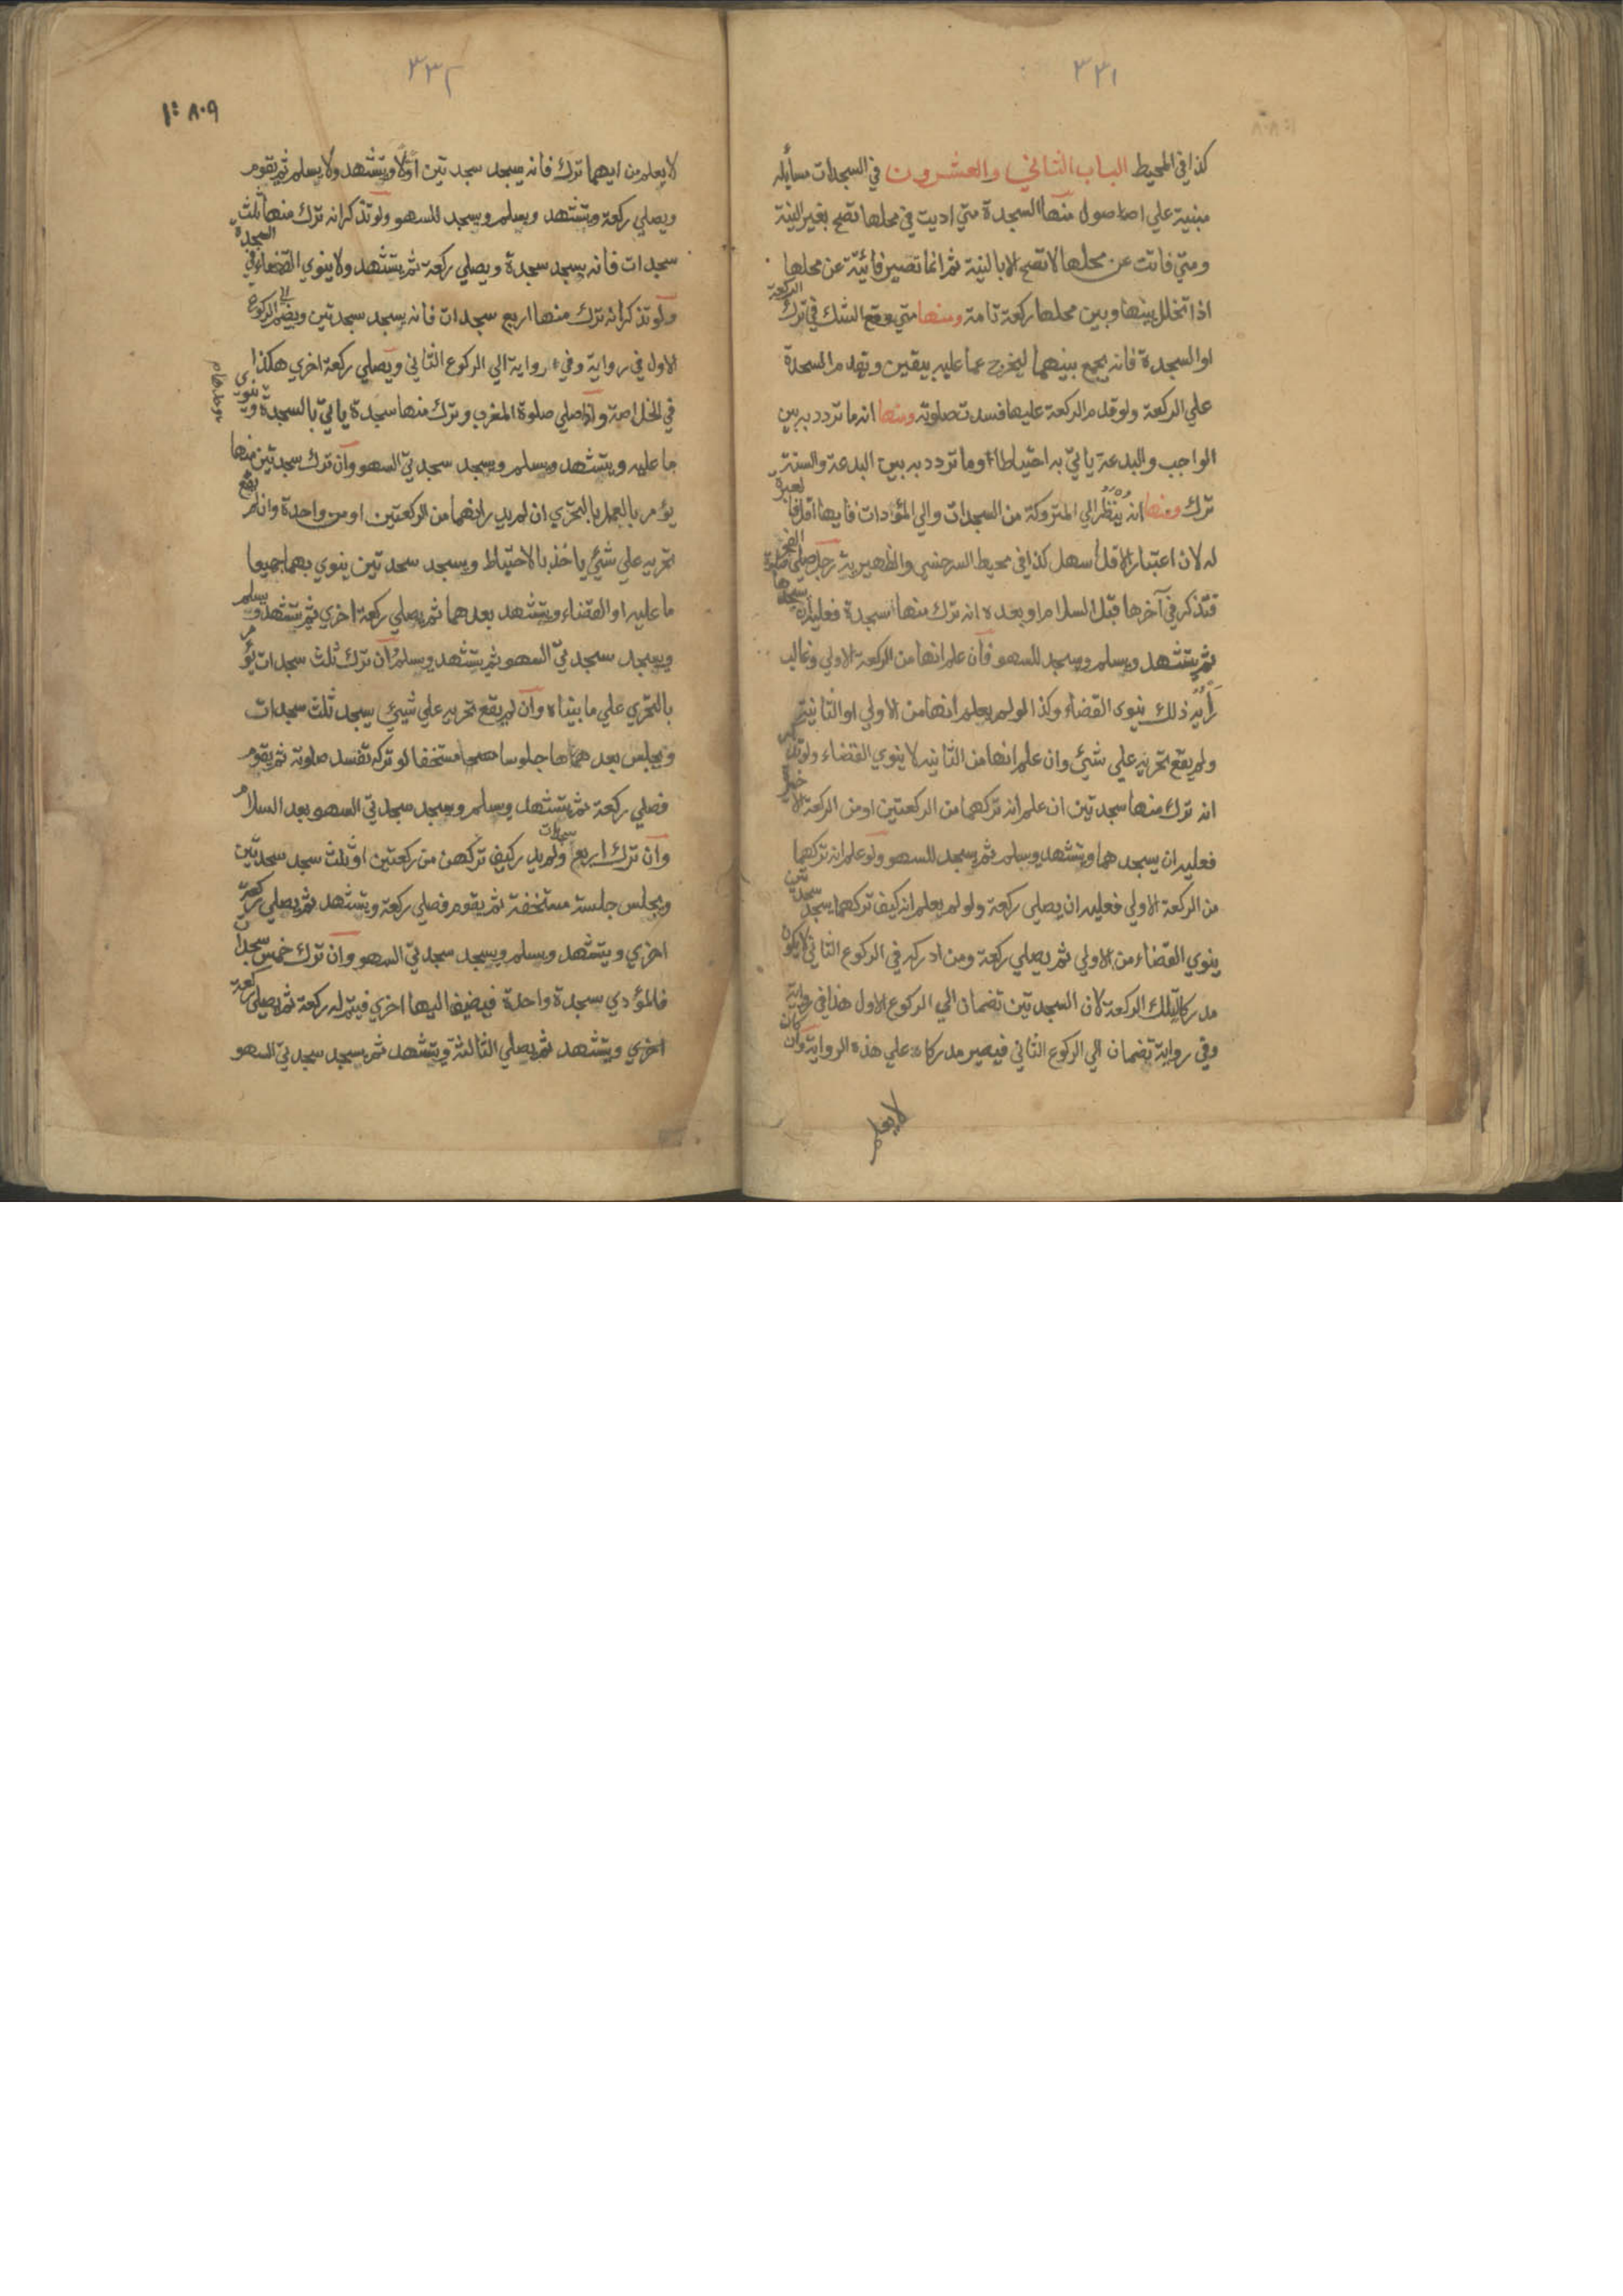 ٣٣١
كذا في المحيط الباب الثاني والعشرون في السجدات مسائله
مبنية علي اصاصول منها السجدة متي اديت في محلها تصح بغير النية
ومتي فاتت عن محلها لا تصح الا بالنية ثم انما تصير فائتة عن محلها
اذا تخلل بينها وبين محلها ركعة تامة ومنها متي وقع الشك في ترك الركعة
او السجدة فانه يجمع بينهما ليخرج عما عليه بيقين وتقدم السجدة
علي الركعة ولو قدم الركعة عليها فسدت صلوته ومنها انه ما تردد به بين
الواجب والبدعة ياتي به احتياطا وما تردد به بين البدعة والسنة
ترك ومنها انه ينظر الي المتروكة من السجدات والي المؤدات فايها اقل فالعبرة
له لان اعتبار الاقل اسهل كذا في محيط السرخسي والظهيرية رجل صلي صلوة الفجر
فتذكر في آخرها قبل السلام او بعده انه ترك منها سجدة فعليه ان يسجدها
ثم يتشهد ويسلم ويسجد للسهو فان علم انها من الركعة الاولي وغالب
رأيه ذلك ينوي القضاء وكذا لو لم يعلم انها من الاولي او الثانية
ولم يقع تحريه علي شئ وان علم انها من الثانيه لا ينوي القضاء ولو تذكر
انه ترك منها سجدتين ان علم انه تركهما من الركعتين او من الركعة الاخيرة
فعليه ان يسجدهما ويتشهد ويسلم ثم يسجد للسهو ولو علم انه تركهما
من الركعة الاولي فعليه ان يصلي ركعة ولو لم يعلم انه كيف تركهما يسجد سجدتين
ينوي القضاء من الاولي ثم يصلي ركعة ومن ادركه في الركوع الثاني لا يكون
مدركا لتلك الركعة لان السجدتين تضمان الي الركوع الاول هذا في رواية
وفي رواية تضمان الي الركوع الثاني فيصير مدركا علي هذه الرواية وان كان
لا يعلم
٣٣٢
١٠٨٠٩
لا يعلم من ايهما ترك فانه يسجد سجدتين اولا ويتشهد ولا يسلم ثم يقوم
ويصلي ركعة ويتشهد ويسلم ويسجد للسهو ولو تذكر انه ترك منها ثلث
سجدات فانه يسجد سجدة ويصلي ركعة ثم يتشهد ولا ينوي القضاء في السجدة
ولو تذكر انه ترك منها اربع سجدات فانه يسجد سجدتين ويضم الي الركوع
الاول في رواية وفي رواية الي الركوع الثاني ويصلي ركعة اخري هكذا
في الخلاصة واذا صلي صلوة المغرب وترك منها سجدة ياتي بالسجدة وينوي
ما عليه ويتشهد ويسلم ويسجد سجدتي السهو وان ترك سجدتين منها
يؤمر بالعمل بالتحري ان لم يدر انهما من الركعتين او من واحدة وان لم يقع
تحريه علي شئ ياخذ بالاحتياط ويسجد سجدتين ينوي بهما جميعا
ما عليه او القضاء ويتشهد بعدهما ثم يصلي ركعة اخري ثم يتشهد ويسلم
ويسجد سجدتي السهو ثم يتشهد ويسلم وان ترك ثلث سجدات يؤمر
بالتحري علي ما بيناه وان لم يقع تحريه علي شيئ يسجد ثلث سجدات
ويجلس بعدها جلوسا مستخفا لو تركه تفسد صلوته ثم يقوم
فصلي ركعة ثم يتشهد ويسلم ويسجد سجدتي السهو بعد السلام
وان ترك اربع سجدات ولم يدر كيف تركهن من ركعتين او ثلث سجد سجدتين
ويجلس جلسة مستخفة ثم يقوم فصلي ركعة ويتشهد ثم يصلي ركعة
اخري ويتشهد ويسلم ويسجد سجدتي السهو وان ترك خمس سجدات
فالمؤدي سجدة واحدة فيضيف اليها اخري فيتم له ركعة ثم يصلي ركعة
اخري ويتشهد ثم يصلي الثالثة ويتشهد ثم يسجد سجدتي السهو